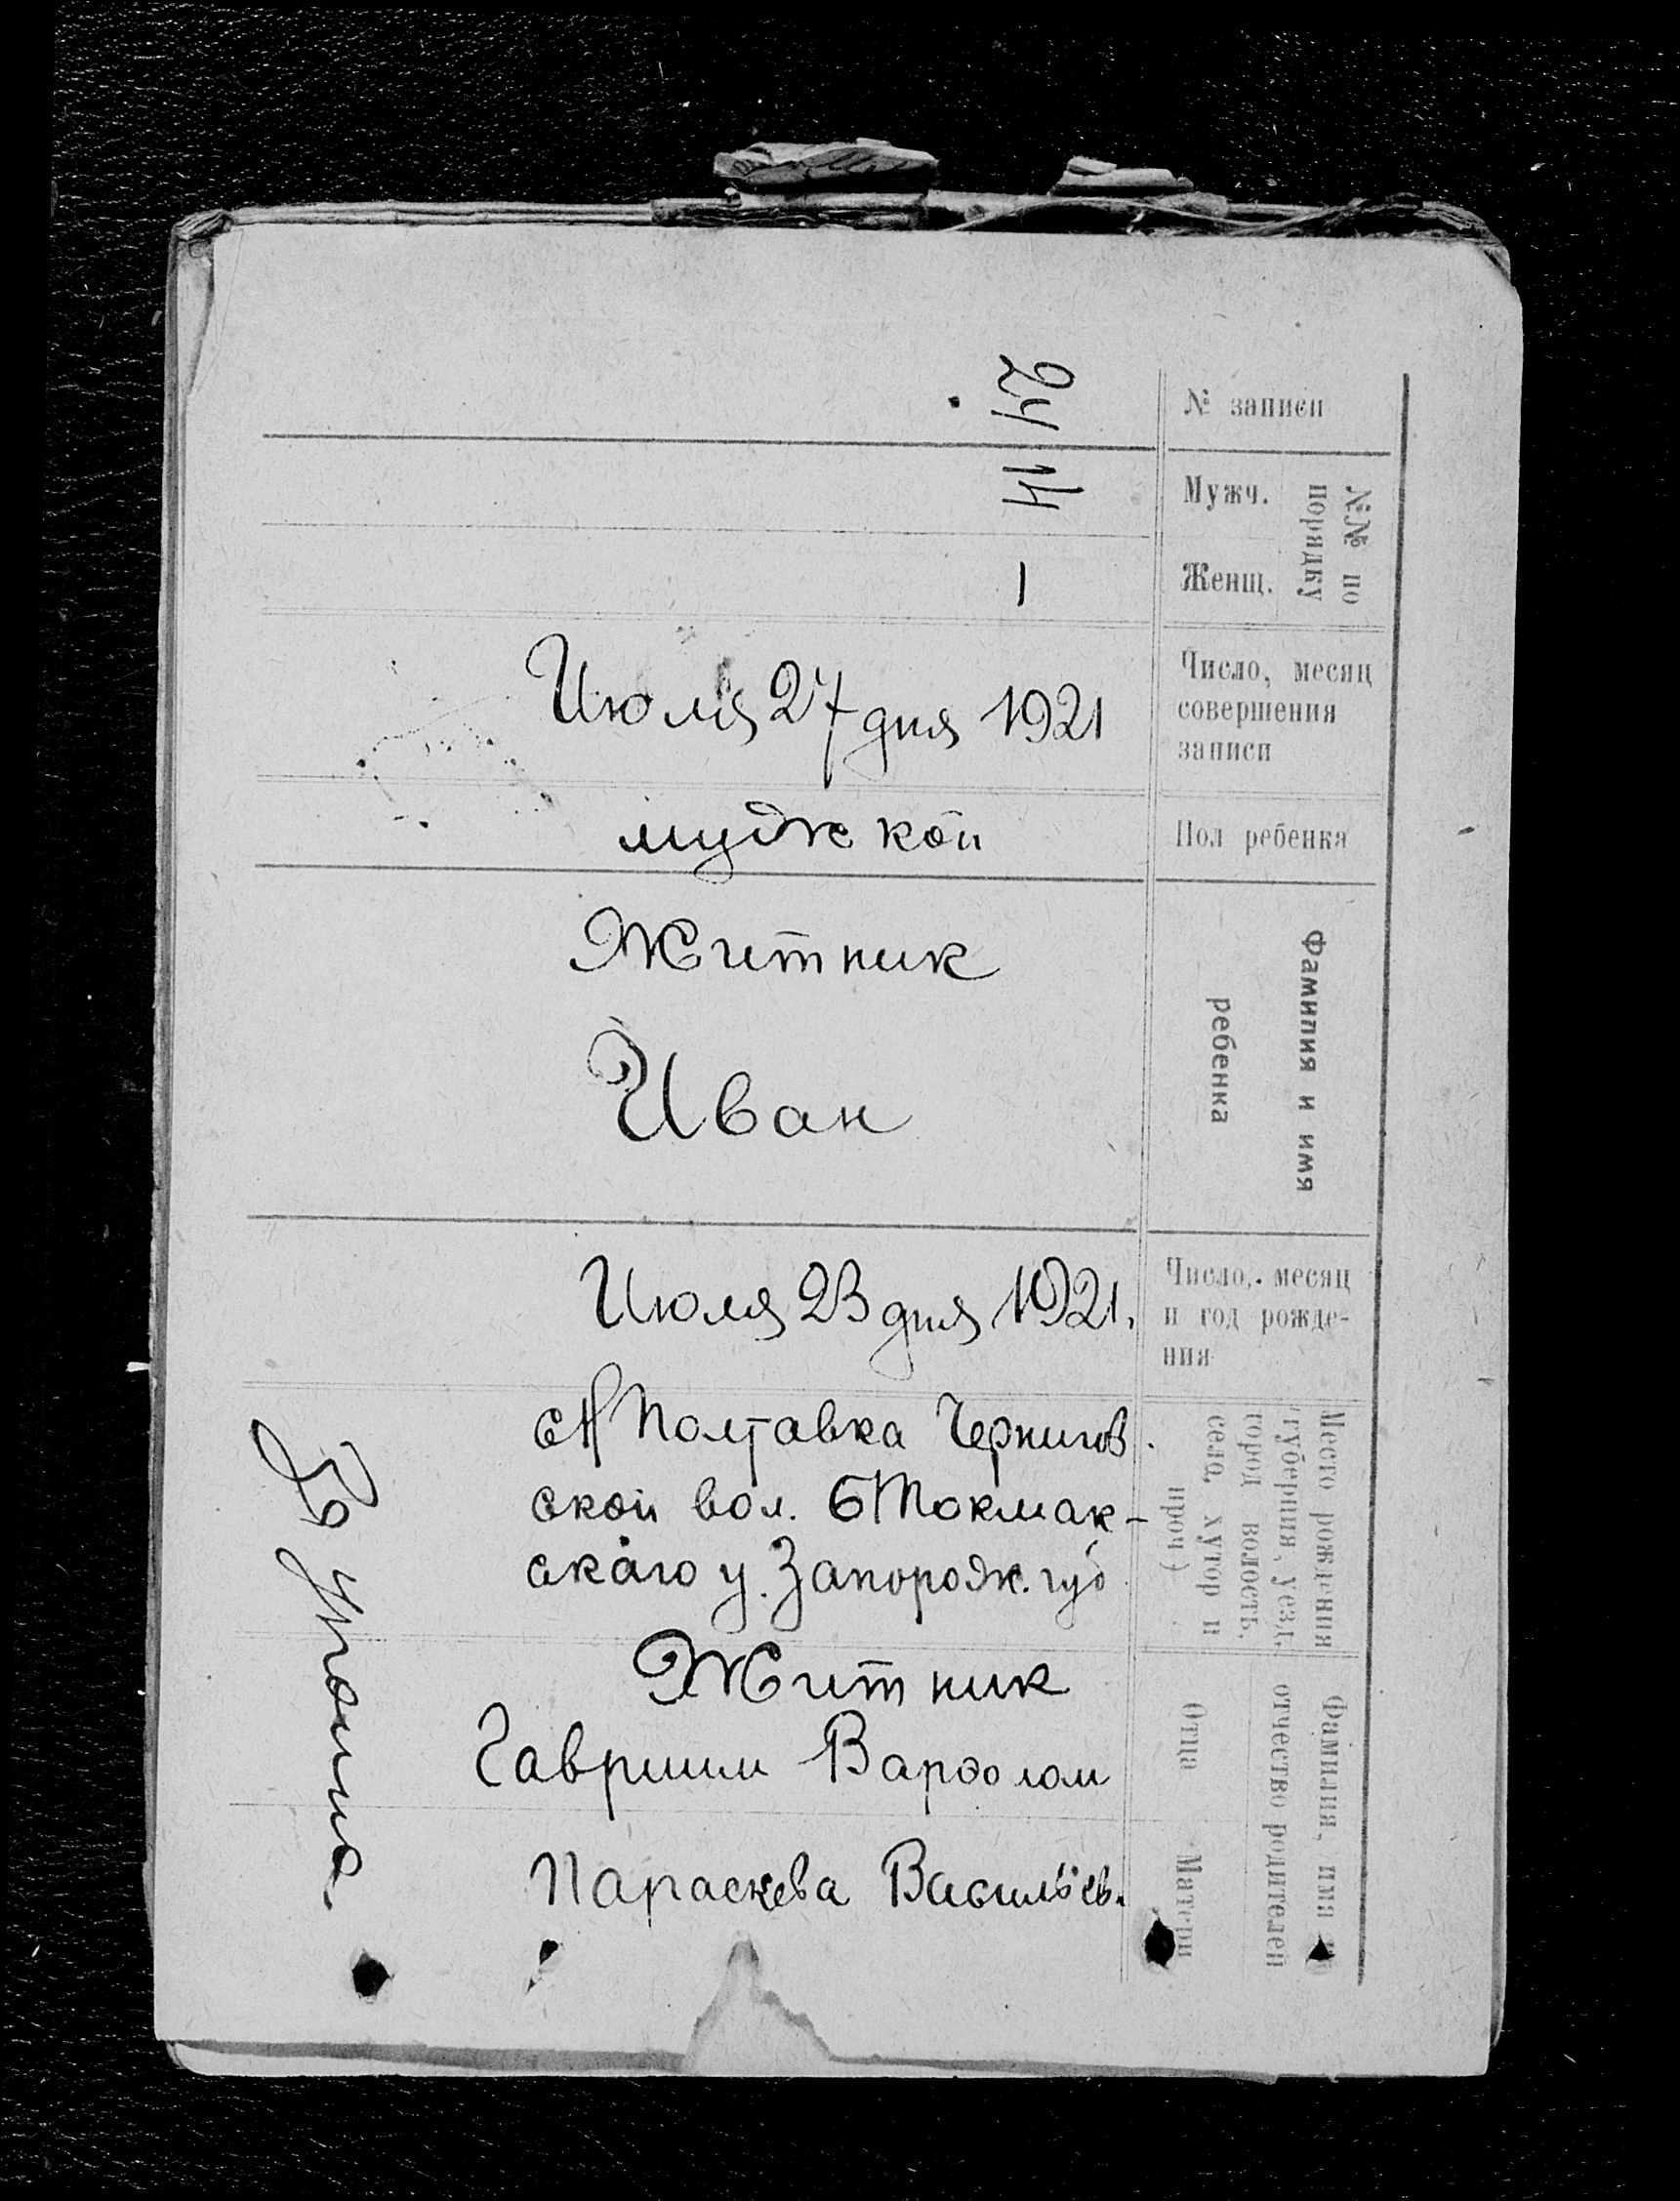 № записи
24
№№ по
порядку
Мужч.
14
Женщ.
1
Число, месяц
совершения
записи
Июля 27 дня 1921
Пол ребенка
мужской
Фамилия и имя
ребенка
Житник
Иван
Число, месяц
и год рожде-
ния
Июля 23 дня 1921.
Место рождения
(губерния, уезд,
город волость,
село, хутор и
проч)
сН Полтавка Чернигов.
ской вол. БТокмак-
скаго у. Запорож. губ
Фамилия, имя
отчество родителей
Отца
Житник
Гавриил Варфолом
Матери
Параскева Васильев.